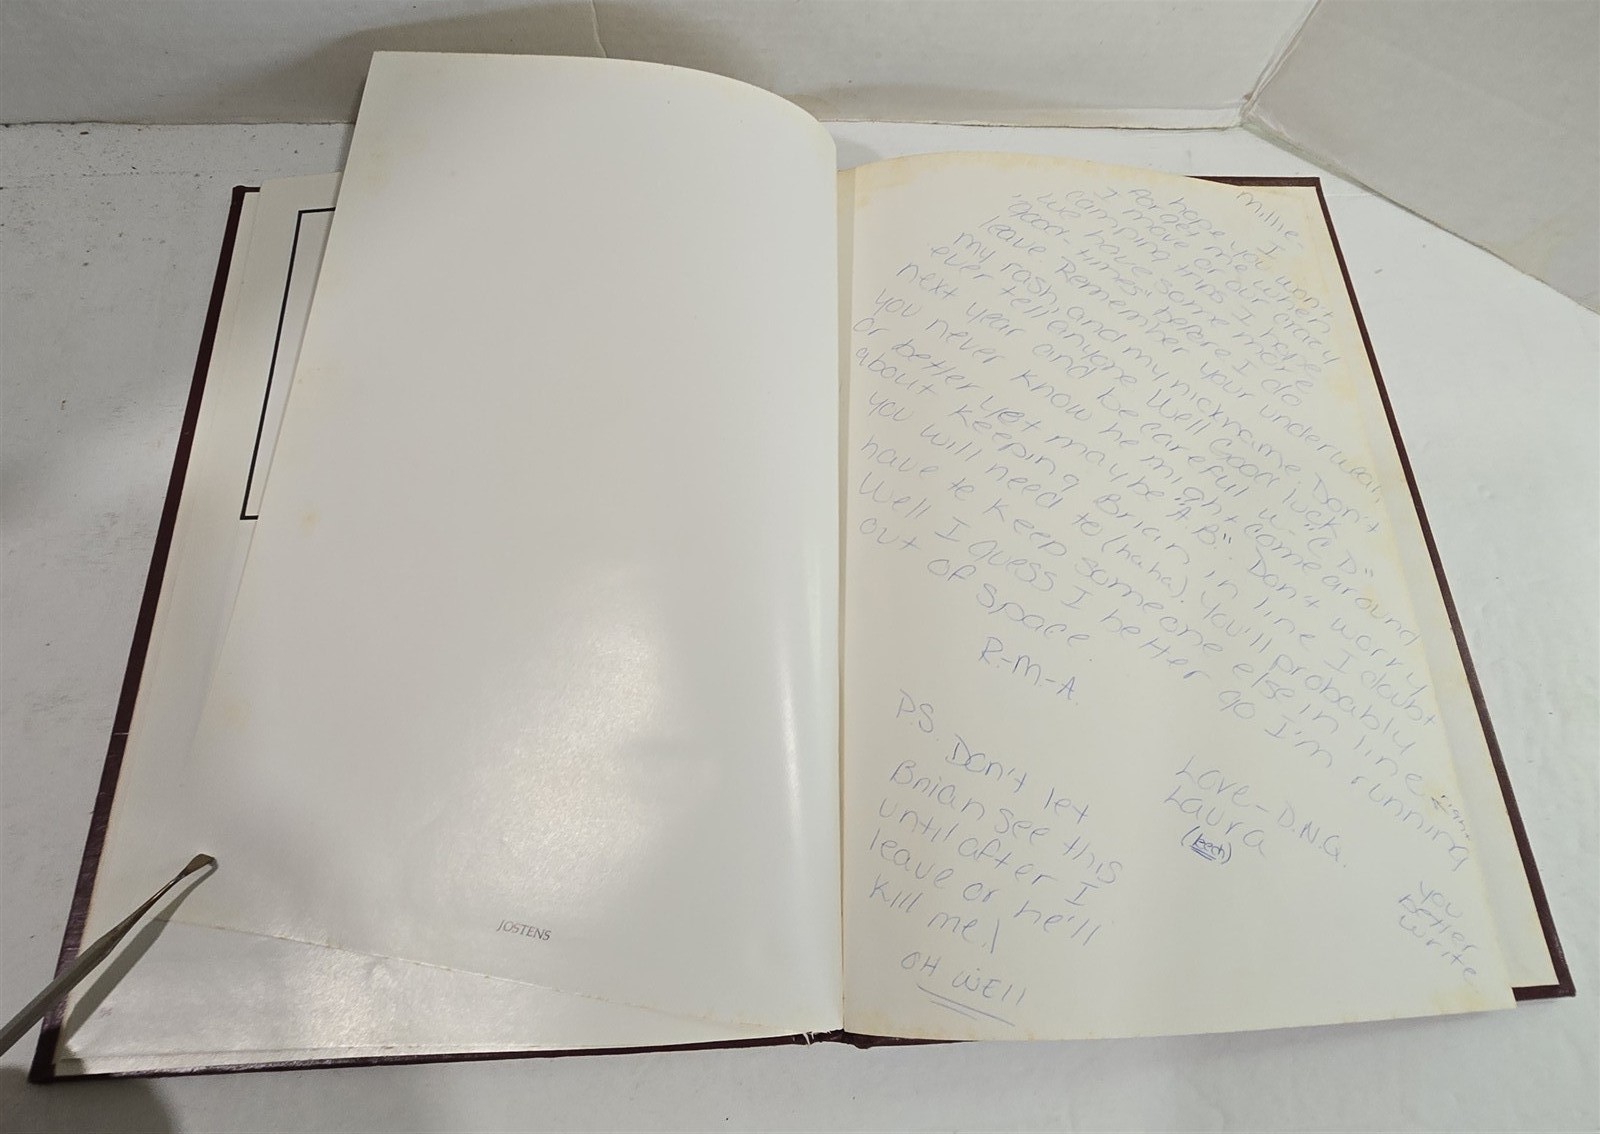 Millie-
I
hope you won't
forget me when
I move or our crazy
camping trips. I hope
we have some more
"good-times" before I do
leave. Remember your underwear,
my rash, and my nickname. Don't
ever tell anyone. Well Good luck
next year and be careful w/ "C.D."
you never know he might come around
or better yet maybe "A.B.". Don't worry
about keeping Brian in line I doubt
you will need to (haha). You'll probably
have to keep someone else in line
Well I guess I better go I'm running
out of space.
R-M-A
Love- D.N.G.
Laura
P.S. Don't let
Brian see this
until after I
leave or he'll
kill me!
OH WEll
you
better
write
JOSTENS